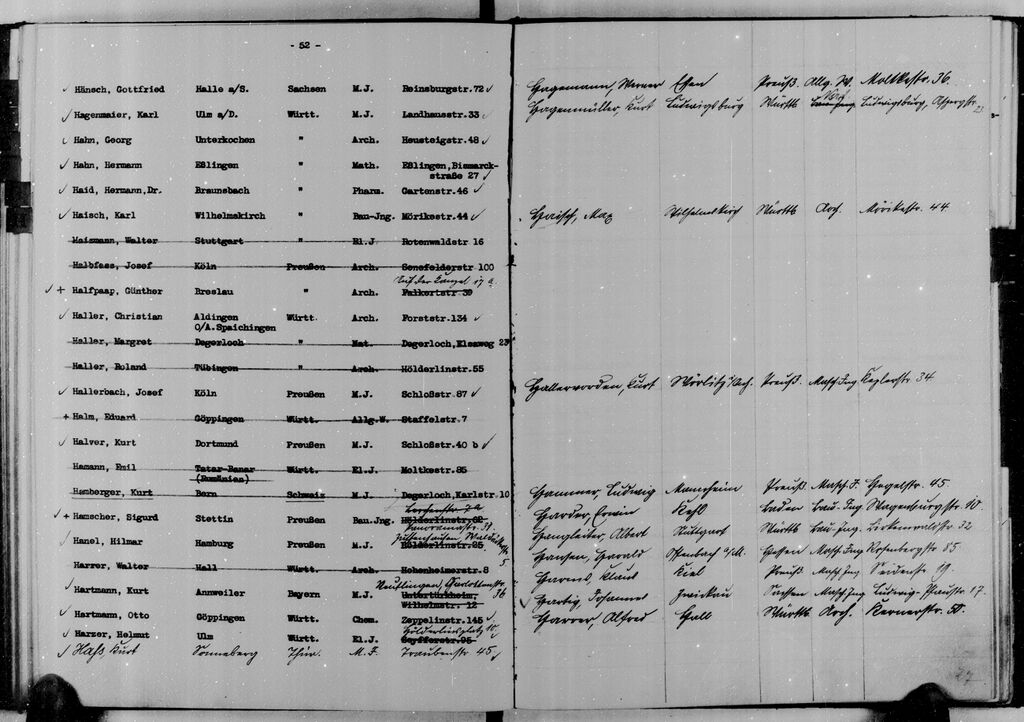 - 52 -
✓ Hänsch, Gottfried Halle a/S. Sachsen M.J. Reinsburgstr.72 ✓
✓ Hagenmaier, Karl Ulm a/D. Württ. M.J. Landhausstr.33 ✓
✓ Hahn, Georg Unterkochen " Arch. Heusteigstr.48 ✓
✓ Hahn, Hermann Eßlingen " Math. Eßlingen,Bismarck-
straße 27 ✓
✓ Haid, Hermann,Dr. Braunsbach " Pharm. Gartenstr.46 ✓
✓ Haisch, Karl Wilhelmskirch " Bau-Jng. Mörikestr.44 ✓
Haizmann, Walter Stuttgart " El.J Rotenwaldstr 16
Halbfass, Josef Köln Preußen Arch. Senefelderstr 100
Auf der
✓ + Halfpaap, Günther Breslau " Arch. Falkertstr 39
✓ Haller, Christian Aldingen Württ. Arch. Forststr.134 ✓
O/A.Spaichingen
Haller, Margret Degerloch " Nat. Degerloch,Elsaweg 23
Haller, Roland Tübingen " Arch. Hölderlinstr.55
✓ Hallerbach, Josef Köln Preußen M.J. Schloßstr.87 ✓
+ Halm, Eduard Göppingen Württ. Allg.W. Staffelstr.7
✓ Halver, Kurt Dortmund Preußen M.J. Schloßstr.40 b ✓
Hamann, Emil Tatar-Banar Württ. El.J. Moltkestr.85
(Rumänien)
Hamberger, Kurt Bern Schweiz M.J. Degerloch,Karlstr.10
✓ + Hamscher, Sigurd Stettin Preußen Bau.Jng. Hölderlinstr.62
Panoramastr.
✓ Hanel, Hilmar Hamburg Preußen M.J. Hölderlinstr.25
Harrer, Walter Hall Württ. Arch. Hohenheimerstr.8
Reutlingen, Charlottenstr.
36
✓ Hartmann, Kurt Annweiler Bayern M.J. Untertürkheim,
Wilhelmstr. 12
✓ Hartmann, Otto Göppingen Württ. Chem. Zeppelinstr.145 ✓
Hölderlinsplatz
✓ Harzer, Helmut Ulm Württ. El.J. Seyfferstr.95
✓ Haß, Kurt Sonneberg Thür. M.J. Traubenstr 45 ✓
Hagemann, Werner Essen Preuß. Allg. W. Moltkestr. 36
Hagenmüller, Kurt Ludwigsburg Württb. Ludwigsburg, Aspergstr.
Haisch, Max Wilhelmskirch Württb. Arch. Mörikestr. 44
Hallervorden, Kurt Wörlitz Preuß. Masch.Ing. Keplerstr. 34
Hammer, Ludwig Mannheim Preuß. Masch. J. Hegelstr. 45
Harder, Erwin Kehl Baden Bau-Ing. Wagenburgstr. 10
Hengleider, Albert Stuttgart Württb. Bau-Ing. Birkenwaldstr. 32
Hansen, Harald Offenbach a/M. Hessen Masch.Ing. Rosenbergstr. 85
Harms, Klaus Kiel Preuß. Masch.Ing. Seidenstr.
✓ Hartig, Johannes Zwickau Sachsen Masch.Ing.
Harrer, Alfred Hall Württb. Arch. Kernerstr. 50.
27